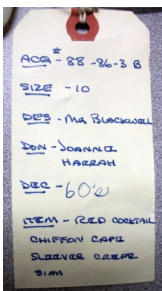 ACQ# - 88-86-3 B
SIZE - 10
DES - Mr Blackwell
DON - JOANNE
HARRAH
DEC - 60's
ITEM - RED COCKTAIL
CHIFFON CAPE
SLEEVES CREPE